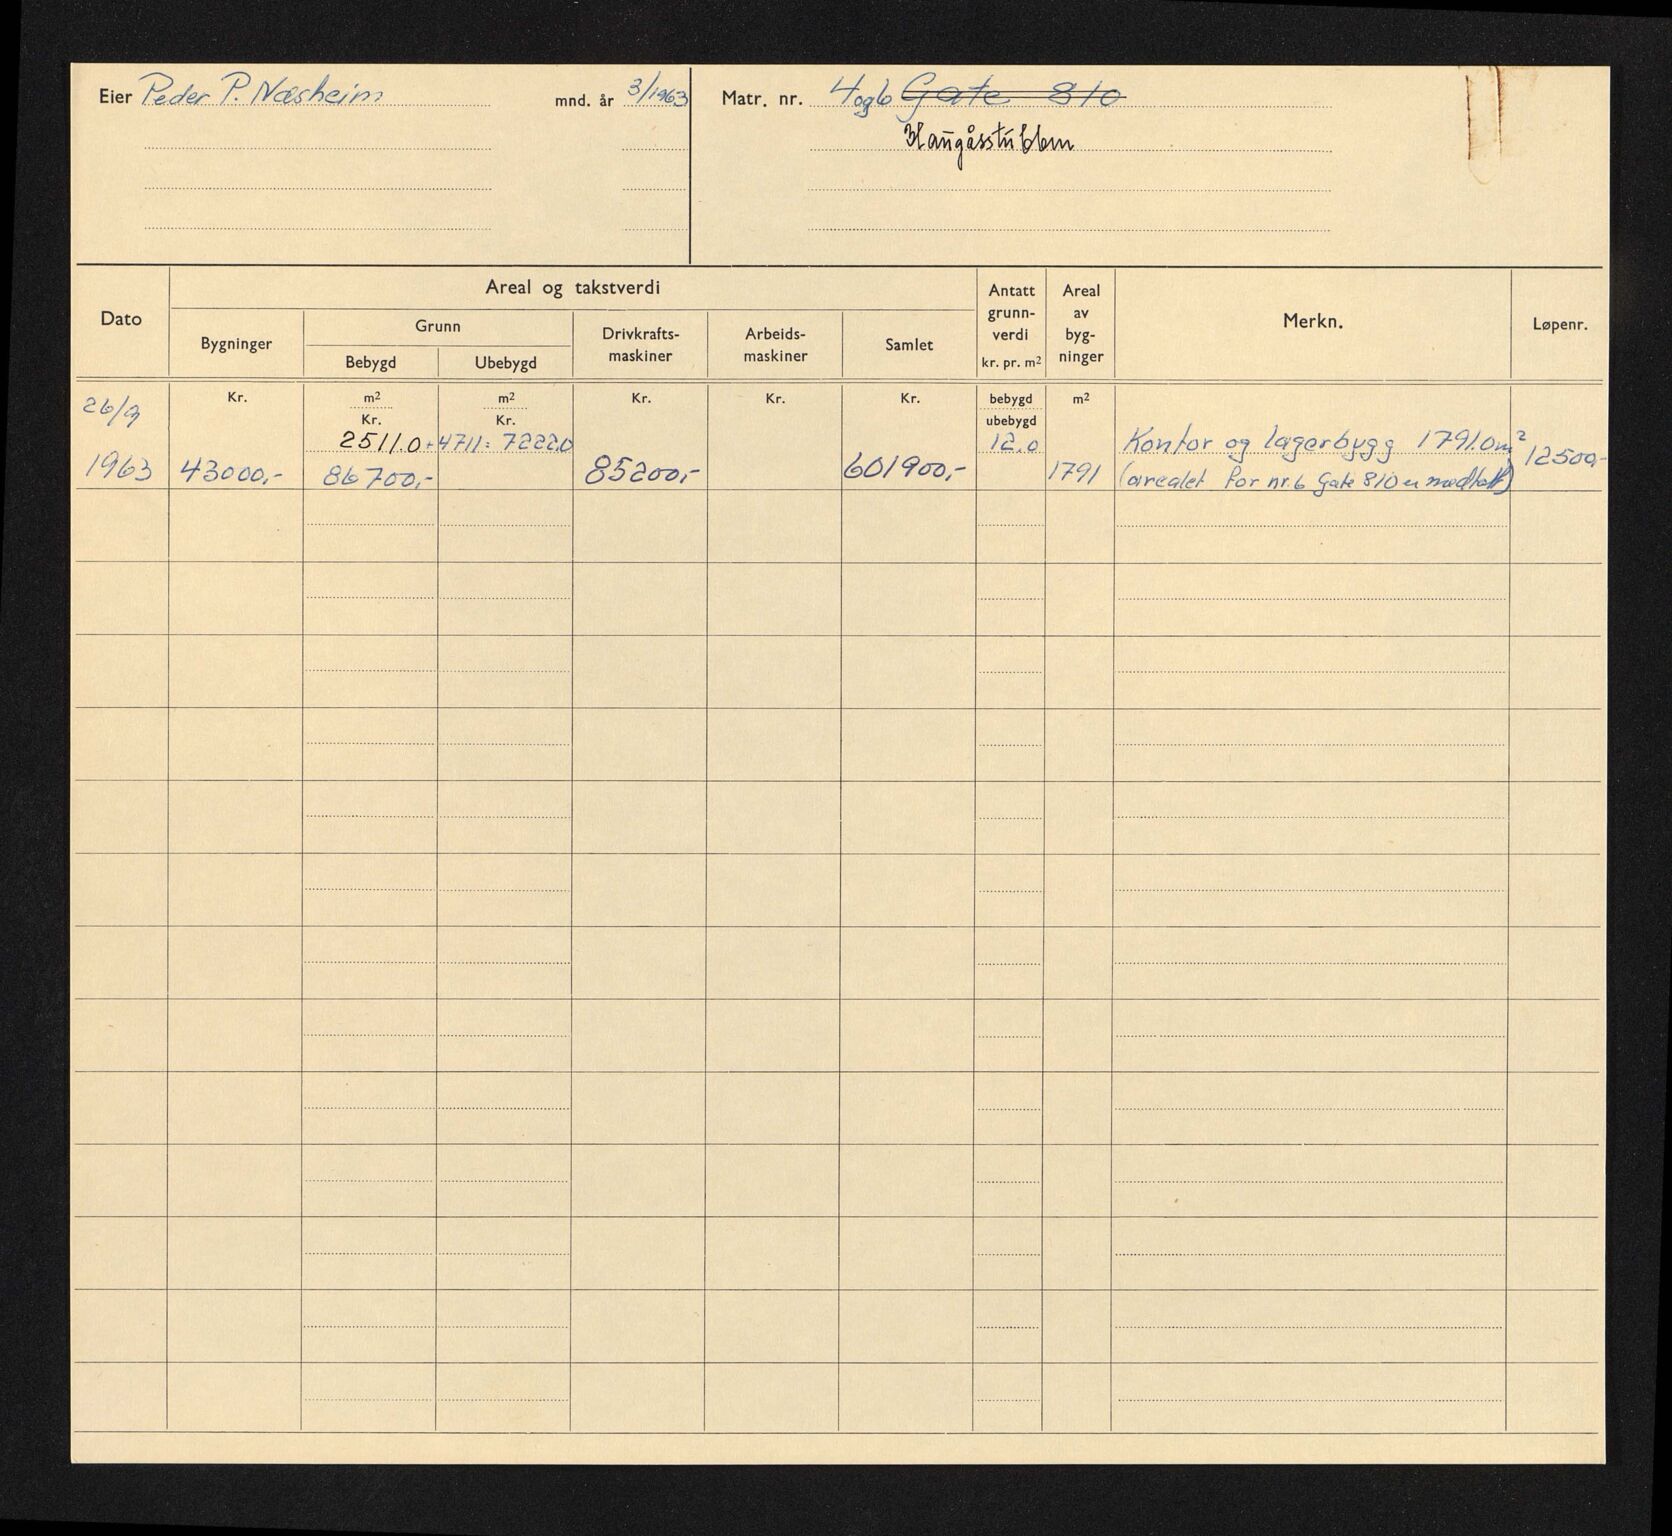 Eier Peder P. Næsheim mnd. år 3/1963 Matr. nr. 4 og 6 Gate 810
Haugåsstubben
Dato
Areal og takstverdi
Bygninger
Grunn
Bebygd
Ubebygd
Drivkrafts-
maskiner
Arbeids-
maskiner
Samlet
Antatt
grunn-
verdi
kr. pr. m²
Areal
av
byg-
ninger
Merkn.
Løpenr.
26/9 Kr. m² m² Kr. Kr. Kr. bebygd m²
Kr. Kr. ubebygd
2511.0 + 4711 = 7222.0 12.0 Kontor og lagerbygg 1791.0m² 12500,-
1963 43000,- 86700,- 85200,- 601900,- 1791 (arealet for nr. 6 Gate 810 er medtatt)